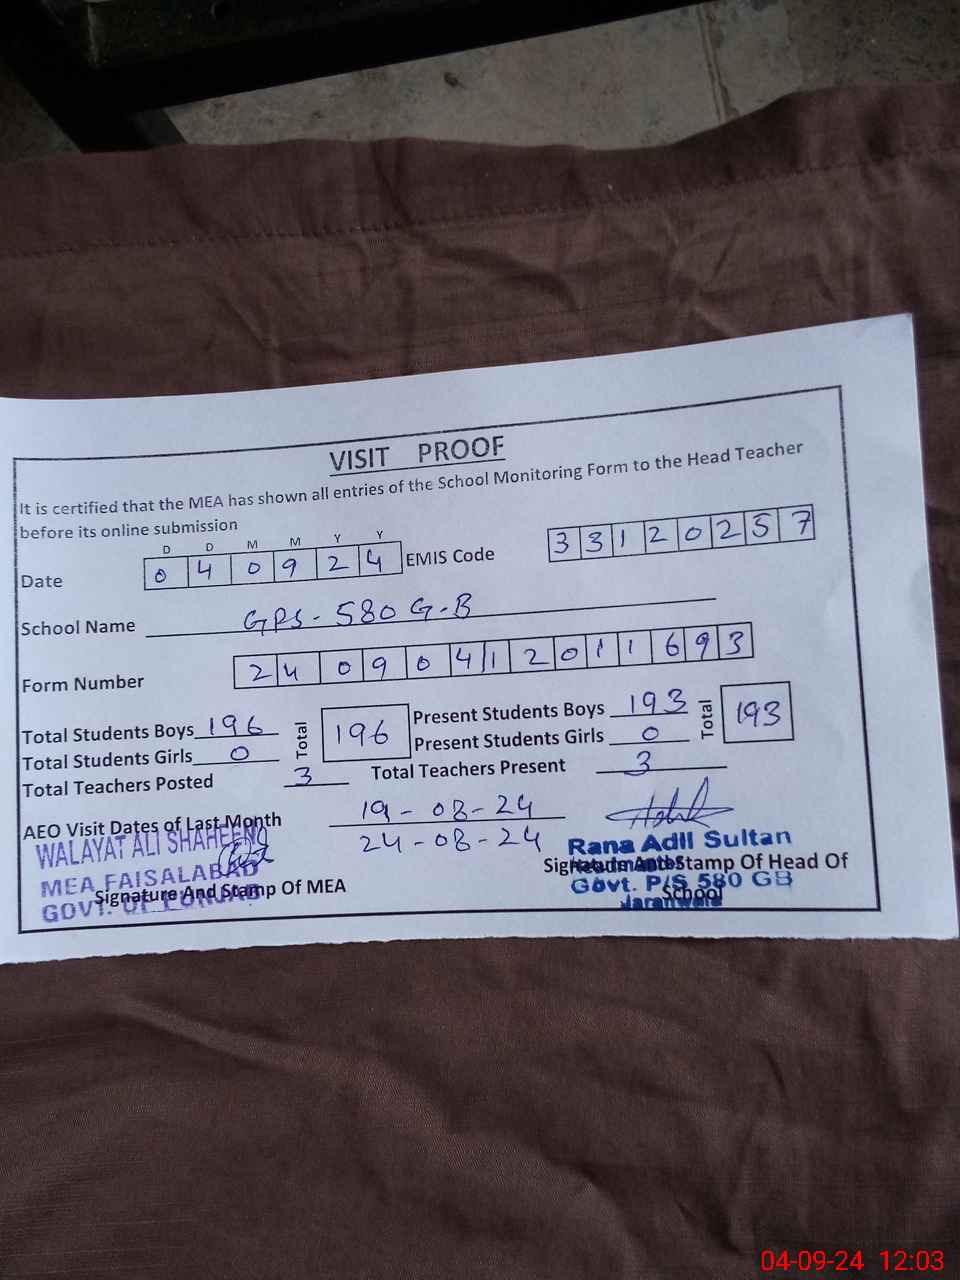 VISIT PROOF
It is certified that the MEA has shown all entries of the School Monitoring Form to the Head Teacher
before its online submission
D D M M Y Y
Date 0 4 0 9 2 4 EMIS Code 3 3 1 2 0 2 5 7
School Name GPS - 580 G-B
Form Number 2 4 0 9 0 4 1 2 0 1 1 6 9 3
Total Students Boys 196 Total 196 Present Students Boys 193 Total 193
Total Students Girls 0 Present Students Girls 0
Total Teachers Posted 3 Total Teachers Present 3
AEO Visit Dates of Last Month 19-08-24
24-08-24
WALAYAT ALI SHAHEEN
MEA FAISALABAD
GOVT. OF PUNJAB
Signature And Stamp Of MEA
Rana Adil Sultan
Signature And Stamp Of Head Of
Govt. P/S 580 GB
School
Jaranwala
04-09-24 12:03